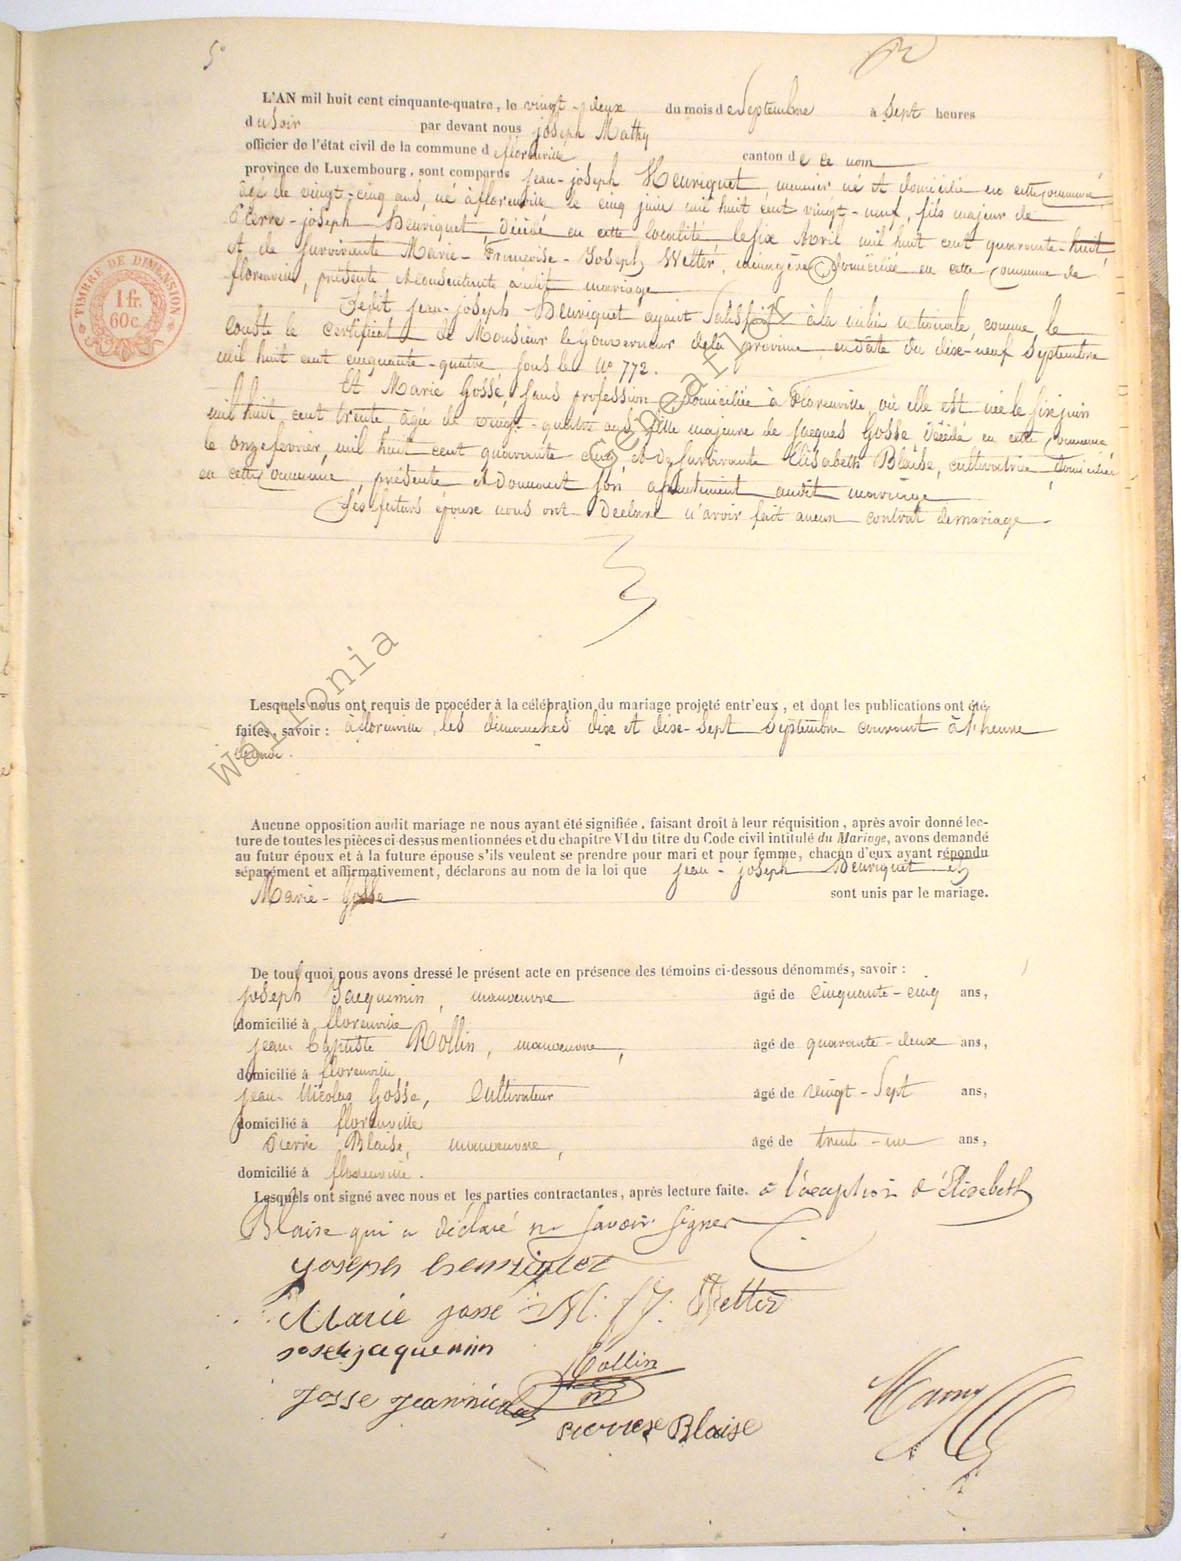 5°
L'AN mil huit cent cinquante-quatre, le vingt-deux du mois de Septembre à Sept heures
du soir par devant nous Joseph Mathy
officier de l'état civil de la commune d florenville canton de ce nom
province de Luxembourg, sont comparus Jean-joseph Henriquet, meunier né et domicilié en cette commune
âgé de vingt-cinq ans, né à florenville le cinq juin mil huit cent vingt-neuf, fils majeur de
Pierre-joseph Henriquet décédé en cette localité le six Avril mil huit cent quarante-huit
et de survivante Marie-Françoise-Joseph Welter, ménagère domiciliée en cette Commune de
florenville, présente et consentante audit mariage
Ledit Jean-joseph Henriquet ayant satisfait à la milice nationale, comme le
Conste le certificat de Monsieur le Gouverneur de la province en date du dix-neuf Septembre
mil huit cent cinquante-quatre sous le N° 772.
Et Marie Gosse, sans profession domiciliée à Florenville, où elle est née le six juin
mil huit cent trente, âgée de vingt-quatre ans fille majeure de Jacques Gosse décédé en cette Commune
le onze fevrier, mil huit cent quarante cinq et de survivante Elisabeth Blaise, cultivatrice domiciliée
en cette Commune, présente et donnant son assentiment audit mariage
Les futurs époux nous ont Déclaré n'avoir fait aucun contrat de mariage.
TIMBRE DE DIMENSION
1 fr.
60 c.
Wallonia Genealogy ©
Lesquels nous ont requis de procéder à la célébration du mariage projeté entr'eux, et dont les publications ont été
faites, savoir : à florenville, les dimanches dix et dix-sept Septembre courant à l'heure
de midi.
Aucune opposition audit mariage ne nous ayant été signifiée, faisant droit à leur réquisition, après avoir donné lec-
ture de toutes les pièces ci-dessus mentionnées et du chapitre VI du titre du Code civil intitulé du Mariage, avons demandé
au futur époux et à la future épouse s'ils veulent se prendre pour mari et pour femme, chacun d'eux ayant répondu
séparément et affirmativement, déclarons au nom de la loi que Jean-joseph Henriquet et
Marie-Gosse sont unis par le mariage.
De tout quoi nous avons dressé le présent acte en présence des témoins ci-dessous dénommés, savoir :
joseph Jacquemin, manoeuvre âgé de cinquante-cinq ans,
domicilié à florenville
jean Baptiste Rollin, manoeuvre, âgé de quarante-deux ans,
domicilié à florenville
jean-Nicolas Gosse, Cultivateur âgé de vingt-Sept ans,
domicilié à florenville
Pierre Blaise, manoeuvre, âgé de trent-un ans,
domicilié à florenville.
Lesquels ont signé avec nous et les parties contractantes, après lecture faite. à l'exception d'Elisabeth
Blaise qui a déclaré ne savoir signer
joseph henriquet
Marie josse M. f. j. Welter
josehjaquemin
Rollin
josse jeannicolas
pierrese Blaise